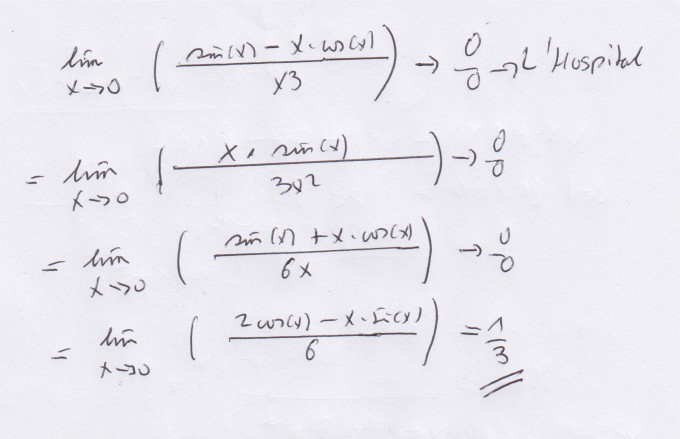 lim x→0 ( (sin(x) − x·cos(x)) / x3 ) → 0/0 → L'Hospital
= lim x→0 ( (x · sin(x)) / 3x2 ) → 0/0
= lim x→0 ( (sin(x) + x·cos(x)) / 6x ) → 0/0
= lim x→0 ( (2cos(x) − x·sin(x)) / 6 ) = 1/3